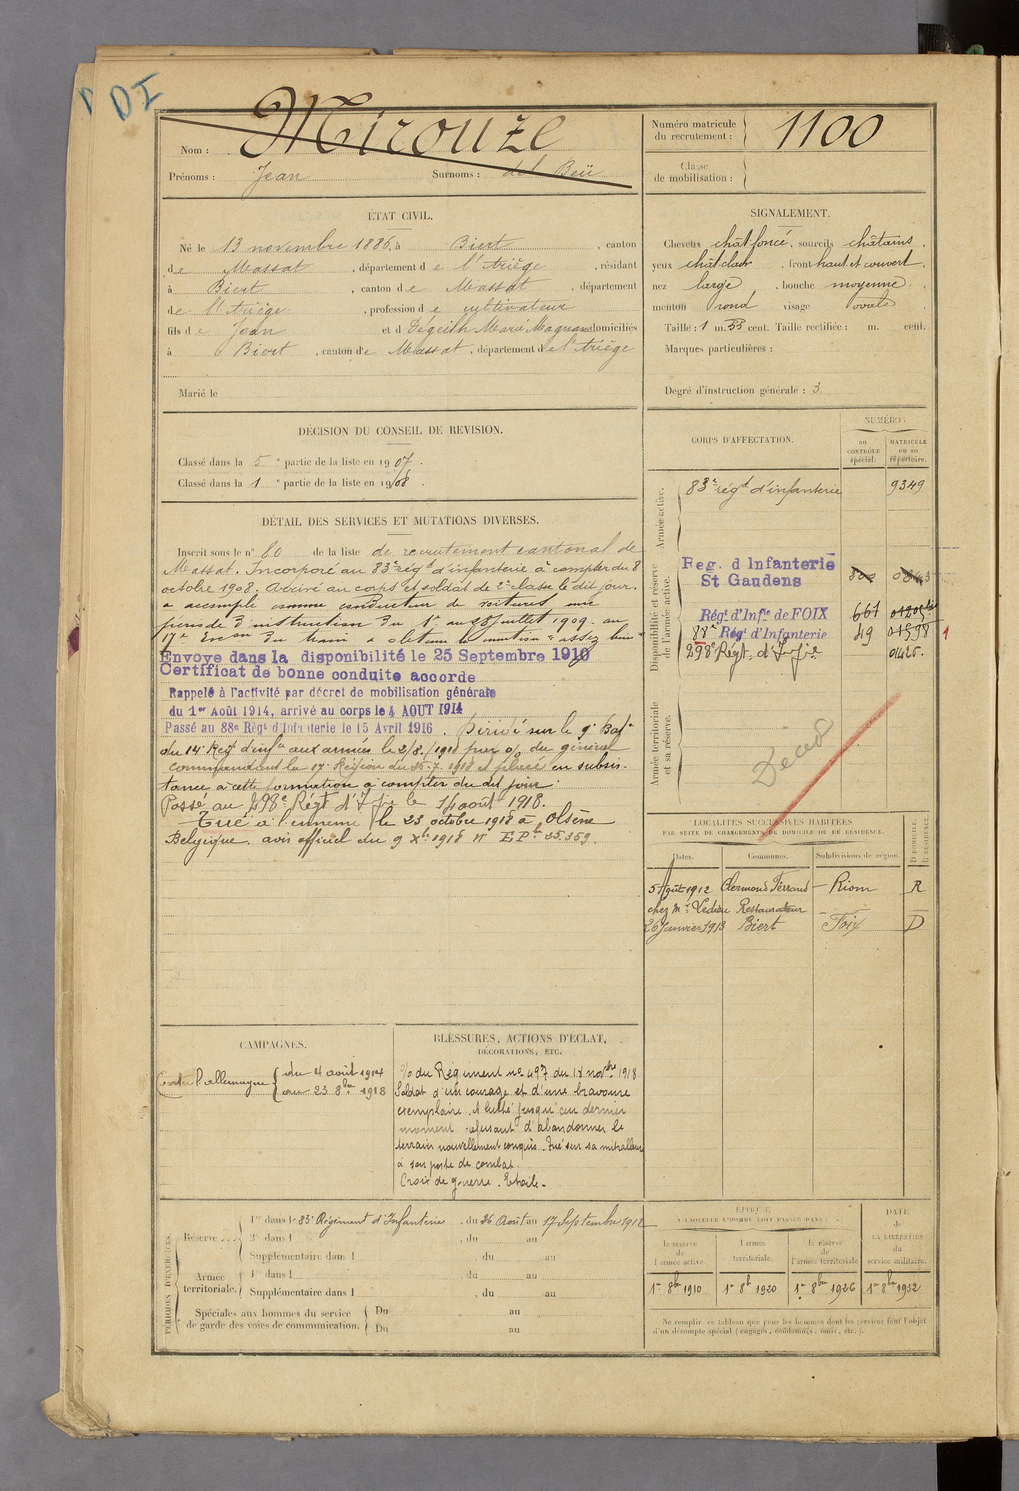 DI
Nom : Mirouze
Prénoms : Jean Surnoms : del Beü
Numéro matricule du recrutement : 1100
Classe de mobilisation :
ETAT CIVIL.
Né le 13 novembre 1886, à Biert, canton
de Massat, département de l'Ariège, résidant
à Biert, canton de Massat, département
de l'Ariège, profession de cultivateur
fils de Jean et d Degeith Marie Magna domiciliés
à Biert, canton de Massat, département de l'Ariège
Marié le
SIGNALEMENT.
Cheveux chât foncé, sourcils châtains,
yeux chât clair, front haut et couvert,
nez large, bouche moyenne,
menton rond visage ovale
Taille : 1 m. 55 cent. Taille rectifiée : m. cent.
Marques particulières :
Degré d'instruction générale : 3
DÉCISION DU CONSEIL DE REVISION.
Classé dans la 5e partie de la liste en 1907.
Classé dans la 1e partie de la liste en 1908.
DÉTAIL DES SERVICES ET MUTATIONS DIVERSES.
Inscrit sous le n° 80 de la liste de recrutement cantonal de
Massat. Incorporé au 83e régt d'infanterie à compter du 8
octobre 1908. Arrivé au corps et soldat de 2e classe le dit jour.
a accompli comme conducteur de voitures une
période d'instruction du 1er au 28 juillet 1909 au
17e Escon du train a obtenu la mention "assez bien"
Envoyé dans la disponibilité le 25 Septembre 1910
Certificat de bonne conduite accordé
Rappelé à l'activité par décret de mobilisation générale
du 1er Août 1914, arrivé au corps le 4 AOUT 1914
Passé au 88e Régt d'Infanterie le 15 Avril 1916. Dirigé sur le 9e Bat
du 14e Régt d'infie aux armées le 2/8/1918 par o/ du général
commandant la 17e Région du 15-7-1918 et placé en subsis-
tance à cette formation à compter du dit jour.
Passé au 298e Régt d'Infie le 14 août 1918.
Tué à l'ennemi le 23 octobre 1918 à Olsene
Belgique. avis officiel du 9 Xbre 1918 N° EPb 25.359.
CORPS D'AFFECTATION.
NUMÉROS
au CONTRÔLE spécial.
MATRICULE ou au répertoire.
Armée active.
83e régt d'infanterie 9349
Disponibilité et réserve de l'armée active.
Reg. d Infanterie
St Gaudens
Régt d'Infie de FOIX 661
88e Régt d'Infanterie 49 01598 1
298e Régt d'Infie
Armée territoriale et sa réserve.
Décédé
LOCALITÉS SUCCESSIVES HABITÉES
PAR SUITE DE CHANGEMENTS DE DOMICILE OU DE RÉSIDENCE.
Dates. Communes. Subdivisions de région. D DOMICILE. R RÉSIDENCE.
5 Août 1912 Clermond Férrand Riom R
chez Mr Ledieu Restaurateur
26 Janvier 1913 Biert Foix D
CAMPAGNES.
Contre l'allemagne du 4 août 1914
au 23 8bre 1918
BLESSURES, ACTIONS D'ÉCLAT,
DÉCORATIONS, ETC.
%o du Régiment n° 497 du 18 novbre 1918
Soldat d'un courage et d'une bravoure
exemplaire. A lutté jusqu'au dernier
moment refusant d'abandonner le
terrain nouvellement conquis. Tué sur sa mitrailleuse
à son poste de combat.
Croix de guerre. Etoile.
PÉRIODES D'EXERCICES.
Réserve 1re dans le 83e Régiment d'Infanterie, du 26 Août au 17 Septembre 1912
2e dans l , du au
Supplémentaire dans l , du au
Armée territoriale. 1re dans l , du au
Supplémentaire dans l , du au
Spéciales aux hommes du service de garde des voies de communication. Du au
Du au
ÉPOQUE
A LAQUELLE L'HOMME DOIT PASSER DANS :
la réserve de l'armée active l'armée territoriale. la réserve de l'armée territoriale
DATE de LA LIBÉRATION du service militaire.
1er 8bre 1910 1er 8bre 1920 1er 8bre 1926 1er 8bre 1932
Ne remplir ce tableau que pour les hommes dont les services font l'objet
d'un décompte spécial (engagés, condamnés, omis, etc.).